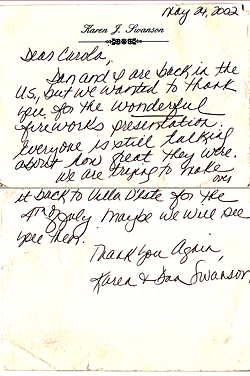 May 24, 2002
Karen J. Swanson
Dear Carola,
Dan and I are back in the
US, but we wanted to thank
you for the wonderful
fireworks presentation.
Everyone is still talking
about how great they were.
We are trying to make
it back to Villa D'Este for the
4th of July. Maybe we will see
you then.
Thank you Again,
Karen & Dan Swanson